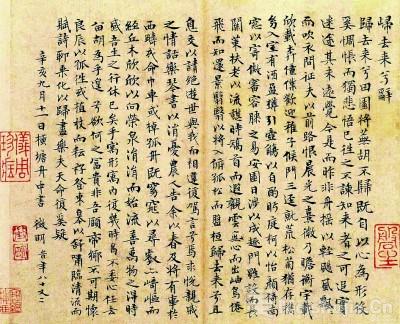 歸去來兮辭
歸去來兮田園將蕪胡不歸既自以心為形役
奚惆悵而獨悲悟已往之不諫知來者之可追實
迷途其未遠覺今是而昨非舟搖搖以輕颺風飄飄
而吹衣問征夫以前路恨晨光之熹微乃瞻衡宇載
欣載奔僮僕歡迎稚子候門三逕就荒松菊猶存攜
幼入室有酒盈樽引壺觴以自酌眄庭柯以怡顏倚南
窗以寄傲審容膝之易安園日涉以成趣門雖設而長
關策扶老以流憩時矯首而遐觀雲無心而出岫鳥倦
飛而知還景翳翳以將入撫孤松而盤桓歸去來兮且
息交以請絕遊世與我而相遺復駕言兮焉求悅親戚
之情話樂琴書以消憂農人告余以春及將有事於
西疇或命巾車或棹孤舟既窈窕以尋壑亦崎嶇而
經丘木欣欣以向榮泉涓涓而始流善萬物之得時
感吾生之行休已矣乎寓形宇內復幾時曷不委心任去
留胡為乎遑遑兮欲何之富貴非吾願帝鄉不可期懷
良辰以孤往或植杖而耘耔登東皋以舒嘯臨清流而
賦詩聊乘化以歸盡樂夫天命復奚疑
辛亥九月一日橫塘舟中書 徵明